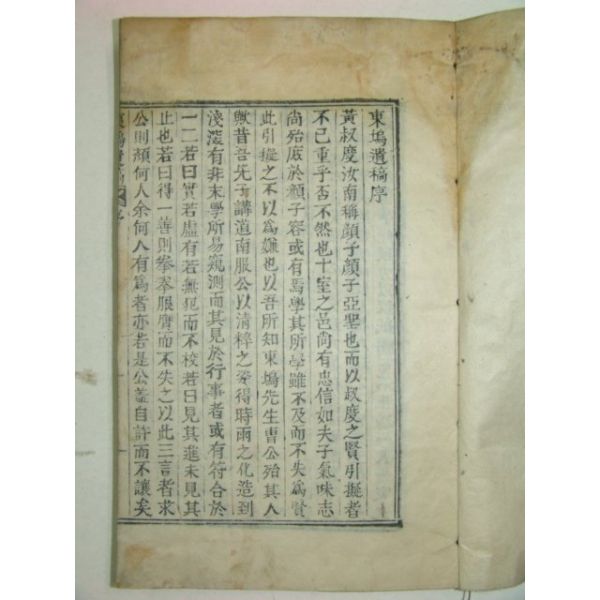 東塢遺稿序
黃叔度汝南稱顔子顔子亞聖也而以叔度之賢引擬者
不已重乎否不然也十室之邑尙有忠信如夫子氣味志
尙殆庶於顔子容或有焉學其所學雖不及而不失爲賢
此引擬之不以爲嫌也以吾所知東塢先生曺公殆其人
歟昔吾先子講道南服公以淸粹之姿得時雨之化造到
淺深有非末學所易窺測而其見於行事者或有符合於
一二若曰實若虛有若無犯而不校若曰見其進未見其
止也若曰得一善則拳拳服膺而不失之以此三言者求
公則顔何人余何人有爲者亦若是公盖自許而不讓矣
東塢遺稿 序